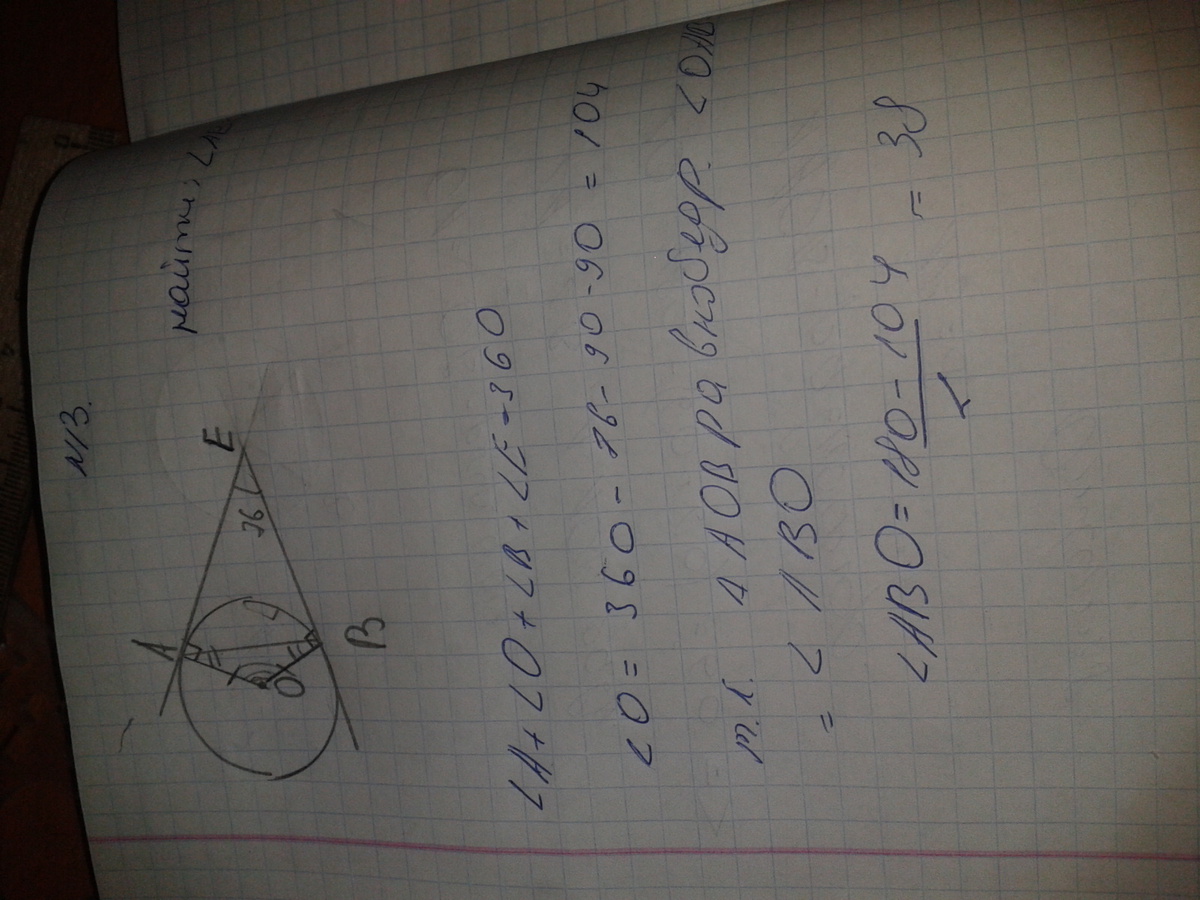 N13.
найти: <
A
E
76
O
B
<A + <O + <B + <E = 360
<O = 360 - 76 - 90 - 90 = 104
т.к. Δ AOB равнобедр.
= < ABO
<ABO = 180 - 104 = 38
2